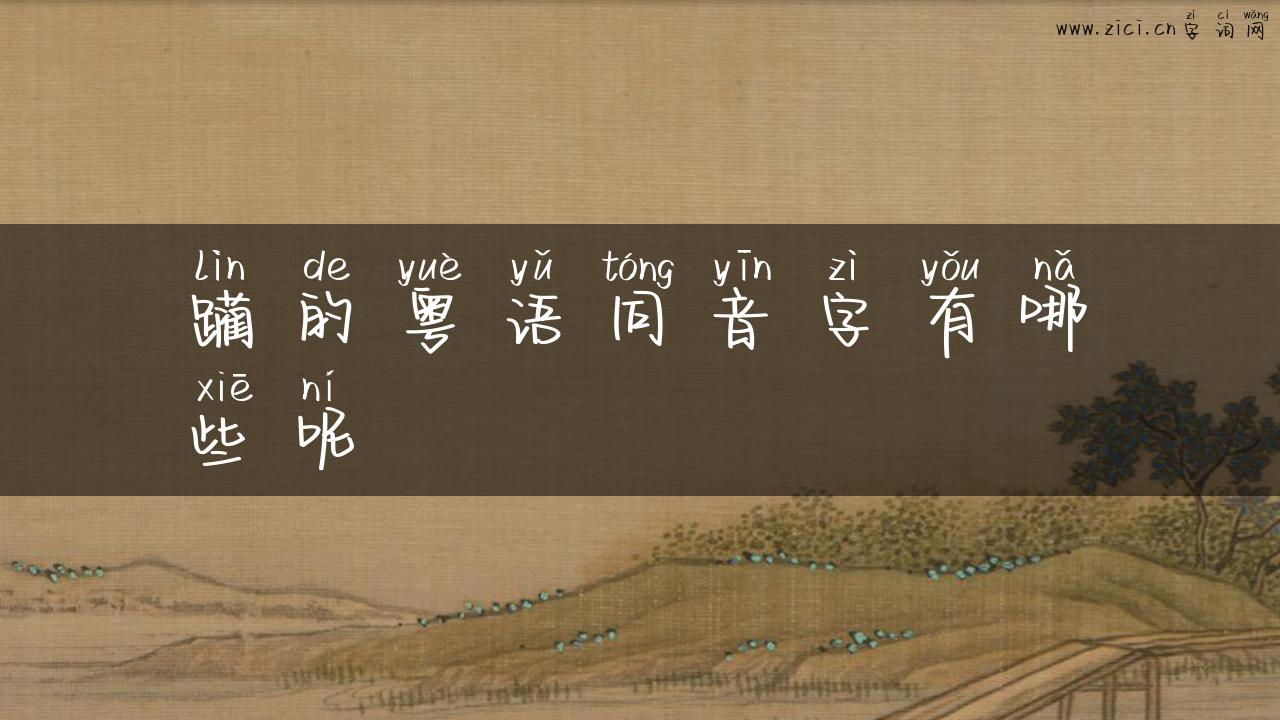 zì cí wǎng
www.zici.cn 字词网
lìn de yuè yǔ tóng yīn zì yǒu nǎ
躏的粤语同音字有哪
xiē ní
些呢